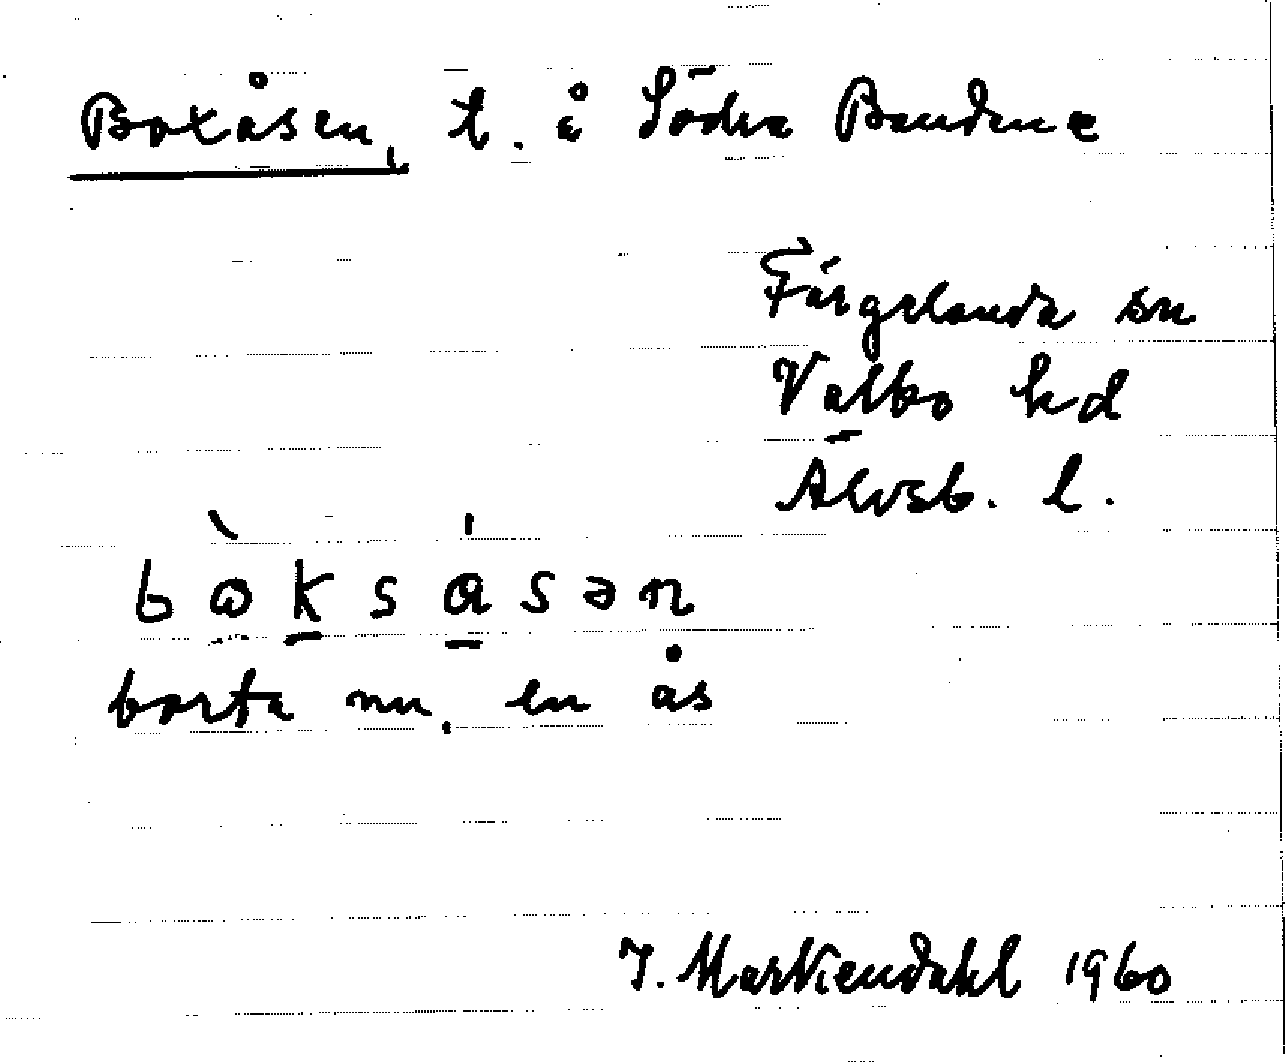 Boxåsen, t. å Södra Bundene
Färgelanda sn
Valbo hd
Älvsb. l.
bòksásən
borta nu, en ås
1960